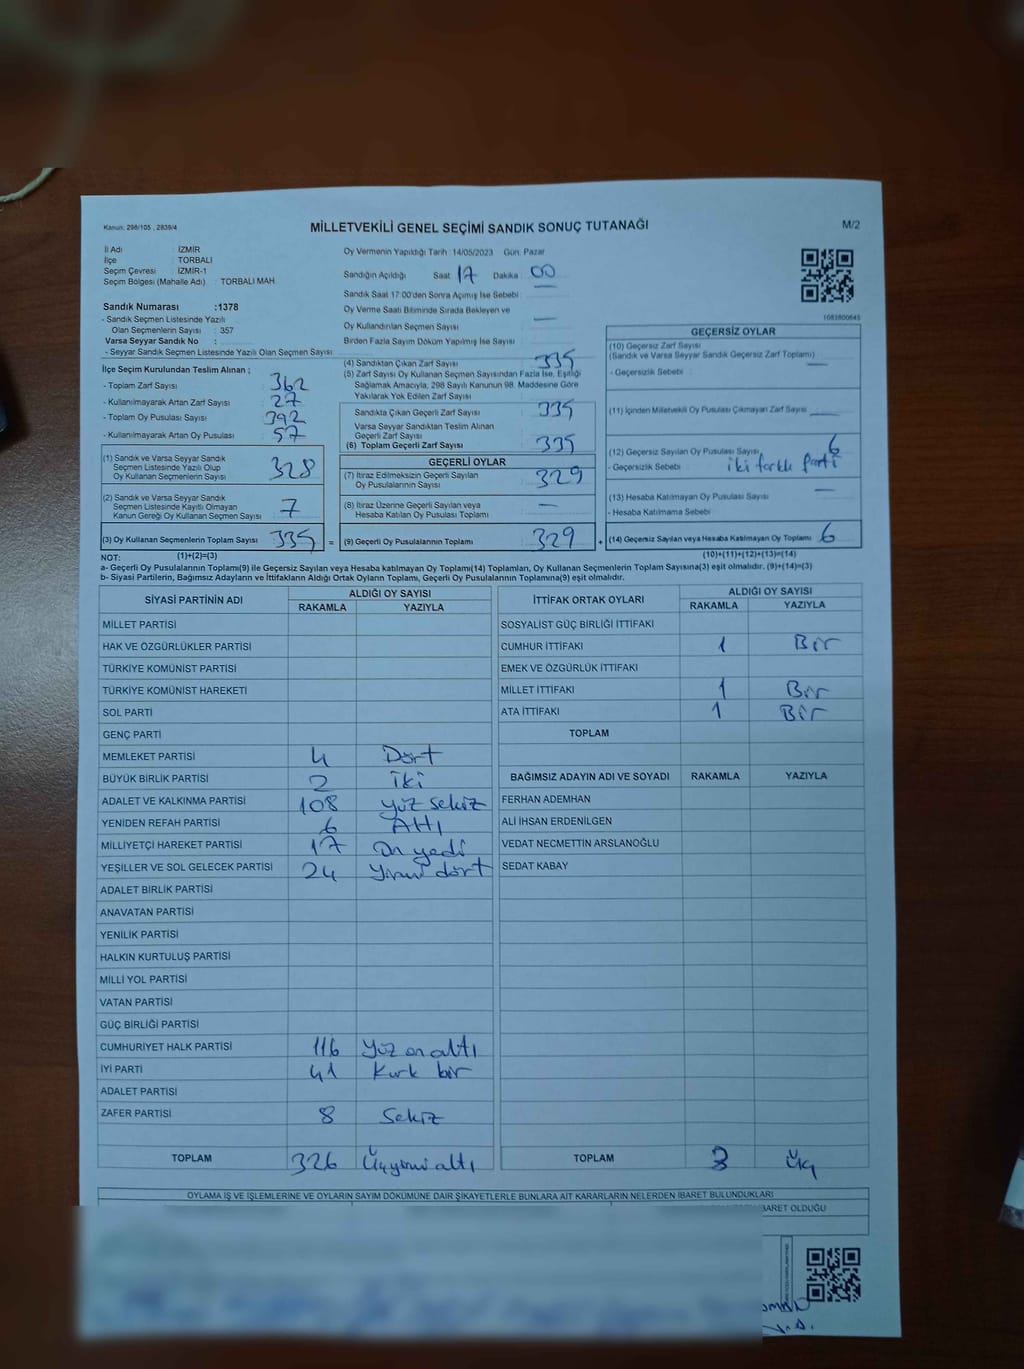 Kanun: 298/105 , 2839/4
MİLLETVEKİLİ GENEL SEÇİMİ SANDIK SONUÇ TUTANAĞI
M/2
İl Adı : İZMİR
İlçe : TORBALI
Seçim Çevresi : İZMİR-1
Seçim Bölgesi (Mahalle Adı) : TORBALI MAH
Oy Vermenin Yapıldığı Tarih :14/05/2023 Gün: Pazar
Sandığın Açıldığı Saat: 17 Dakika: 00
Sandık Saat 17:00'den Sonra Açılmış İse Sebebi :
Oy Verme Saati Bitiminde Sırada Bekleyen ve
Oy Kullandırılan Seçmen Sayısı : —
Birden Fazla Sayım Döküm Yapılmış İse Sayısı :
1083800645
Sandık Numarası :1378
- Sandık Seçmen Listesinde Yazılı
Olan Seçmenlerin Sayısı : 357
Varsa Seyyar Sandık No :
- Seyyar Sandık Seçmen Listesinde Yazılı Olan Seçmen Sayısı :
İlçe Seçim Kurulundan Teslim Alınan ;
- Toplam Zarf Sayısı : 362
- Kullanılmayarak Artan Zarf Sayısı : 27
- Toplam Oy Pusulası Sayısı : 392
- Kullanılmayarak Artan Oy Pusulası : 57
(1) Sandık ve Varsa Seyyar Sandık
Seçmen Listesinde Yazılı Olup
Oy Kullanan Seçmen Sayısı : 328
(2) Sandık ve Varsa Seyyar Sandık
Seçmen Listesinde Kayıtlı Olmayan
Kanun Gereği Oy Kullanan Seçmen Sayısı : 7
(3) Oy Kullanan Seçmenlerin Toplam Sayısı : 335 =
(4) Sandıktan Çıkan Zarf Sayısı : 335
(5) Zarf Sayısı Oy Kullanan Seçmen Sayısından Fazla İse, Eşitliği
Sağlamak Amacıyla, 298 Sayılı Kanunun 98. Maddesine Göre
Yakılarak Yok Edilen Zarf Sayısı :
Sandıkta Çıkan Geçerli Zarf Sayısı : 335
Varsa Seyyar Sandıktan Teslim Alınan
Geçerli Zarf Sayısı :
(6) Toplam Geçerli Zarf Sayısı : 335
GEÇERLİ OYLAR
(7) İtiraz Edilmeksizin Geçerli Sayılan
Oy Pusulalarının Sayısı : 329
(8) İtiraz Üzerine Geçerli Sayılan veya
Hesaba Katılan Oy Pusulası Toplamı : —
(9) Geçerli Oy Pusulalarının Toplamı : 329 +
GEÇERSİZ OYLAR
(10) Geçersiz Zarf Sayısı
(Sandık ve Varsa Seyyar Sandık Geçersiz Zarf Toplamı)
- Geçersizlik Sebebi : —
(11) İçinden Milletvekili Oy Pusulası Çıkmayan Zarf Sayısı : —
(12) Geçersiz Sayılan Oy Pusulası Sayısı : 6
- Geçersizlik Sebebi : iki farklı parti
(13) Hesaba Katılmayan Oy Pusulası Sayısı : —
- Hesaba Katılmama Sebebi :
(14) Geçersiz Sayılan veya Hesaba Katılmayan Oy Toplamı : 6
NOT: (1)+(2)=(3) (10)+(11)+(12)+(13)=(14)
a- Geçerli Oy Pusulalarının Toplamı(9) ile Geçersiz Sayılan veya Hesaba Katılmayan Oy Toplamı(14) Toplamları, Oy Kullanan Seçmenlerin Toplam Sayısına(3) eşit olmalıdır. (9)+(14)=(3)
b- Siyasi Partilerin, Bağımsız Adayların ve İttifakların Aldığı Ortak Oyların Toplamı, Geçerli Oy Pusulalarının Toplamına(9) eşit olmalıdır.
SİYASİ PARTİNİN ADI ALDIĞI OY SAYISI
RAKAMLA YAZIYLA
MİLLET PARTİSİ
HAK VE ÖZGÜRLÜKLER PARTİSİ
TÜRKİYE KOMÜNİST PARTİSİ
TÜRKİYE KOMÜNİST HAREKETİ
SOL PARTİ
GENÇ PARTİ
MEMLEKET PARTİSİ 4 Dört
BÜYÜK BİRLİK PARTİSİ 2 iki
ADALET VE KALKINMA PARTİSİ 108 yüz sekiz
YENİDEN REFAH PARTİSİ 6 Altı
MİLLİYETÇİ HAREKET PARTİSİ 17 On yedi
YEŞİLLER VE SOL GELECEK PARTİSİ 24 Yirmi dört
ADALET BİRLİK PARTİSİ
ANAVATAN PARTİSİ
YENİLİK PARTİSİ
HALKIN KURTULUŞ PARTİSİ
MİLLİ YOL PARTİSİ
VATAN PARTİSİ
GÜÇ BİRLİĞİ PARTİSİ
CUMHURİYET HALK PARTİSİ 116 Yüz on altı
İYİ PARTİ 41 Kırk bir
ADALET PARTİSİ
ZAFER PARTİSİ 8 Sekiz
TOPLAM 326 Üçyirmi altı
İTTİFAK ORTAK OYLARI ALDIĞI OY SAYISI
RAKAMLA YAZIYLA
SOSYALİST GÜÇ BİRLİĞİ İTTİFAKI
CUMHUR İTTİFAKI 1 Bir
EMEK VE ÖZGÜRLÜK İTTİFAKI
MİLLET İTTİFAKI 1 Bir
ATA İTTİFAKI 1 Bir
TOPLAM
BAĞIMSIZ ADAYIN ADI VE SOYADI RAKAMLA YAZIYLA
FERHAN ADEMHAN
ALİ İHSAN ERDENİLGEN
VEDAT NECMETTİN ARSLANOĞLU
SEDAT KABAY
TOPLAM 3 Üç
OYLAMA İŞ VE İŞLEMLERİNE VE OYLARIN SAYIM DÖKÜMÜNE DAİR ŞİKAYETLERLE BUNLARA AİT KARARLARIN NELERDEN İBARET BULUNDUKLARI
BARET OLDUĞU